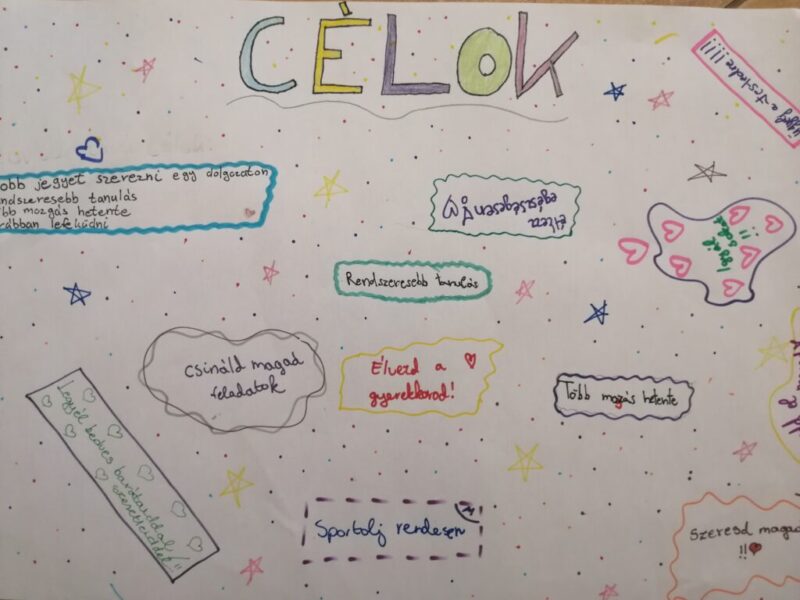 CÈLOK
obb jegyet szerezni egy dolgozaton
ndszeresebb tanulás
bb mozgás hetente
rábban lefeküdni
Élezz
egészségesen
a testedre!!!!
Igyál
sokat
!!
Rendszeresebb tanulás
Csináld magad
feladatok
Élvezd a
gyerekkorod!
Több mozgás hetente
Legyél kedves barátaiddal,
szeretteiddel!!
Sportolj rendesen
Szeresd magad
!!